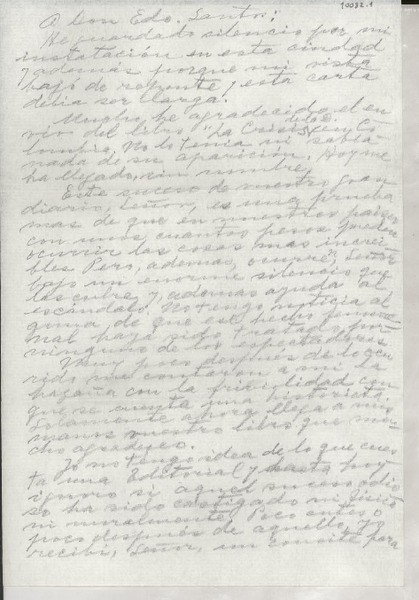 10032.1
A Don Edo. Santos:
He guardado silencio por mi
instalación en esta ciudad
y además porque mi vista
bajó de repente y esta carta
debía ser larga.
Mucho he agradecido el en
vío del libro "La Crisis de la en Co
lombia. No lo tenía ni sabía
nada de su aparición, hoy me
ha llegado, sin nombre,
Este suceso de nuestro gran
diario, Señor, es una prueba
mas de que en nuestros países
con unos cuantos pesos pueden
ocurrir las cosas mas increí
bles Pero, además, ocurre, Señor
bajo un enorme silencio que
las cubre y, además ayuda al
escándalo. No tengo noticia al
guna de que ese hecho fenome
nal haya sido tratado por
ninguno de los espectadores
Muy poco después de lo ocu
rido me contaron a mí la
hazaña con la frivolidad con
que se cuenta una historieta.
Solamente ahora llega a mis
manos vuestro libro que mu
cho agradezco.
Yo no tengo idea de lo que cues
ta una Editorial y hasta hoy
ignoro si aquel suceso odio
so ha sido castigado ni física
ni moralmente. Poco antes o
poco después de aquello, yo
recibí, Señor, un convite para